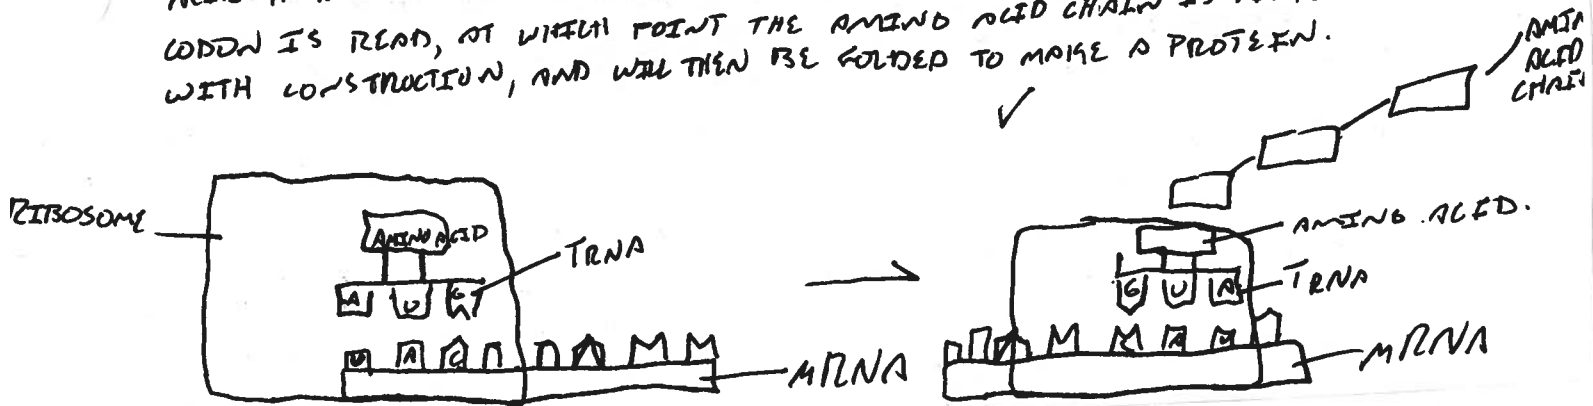 CODON IS READ, AT WHICH POINT THE AMINO ACID CHAIN IS
WITH CONSTRUCTION, AND WILL THEN BE FOLDED TO MAKE A PROTEIN.
AMIN
ACID
CHAIN
RIBOSOME
AMINO ACID
TRNA
A U G
U A C
MRNA
AMINO ACID.
TRNA
G U A
A U
MRNA